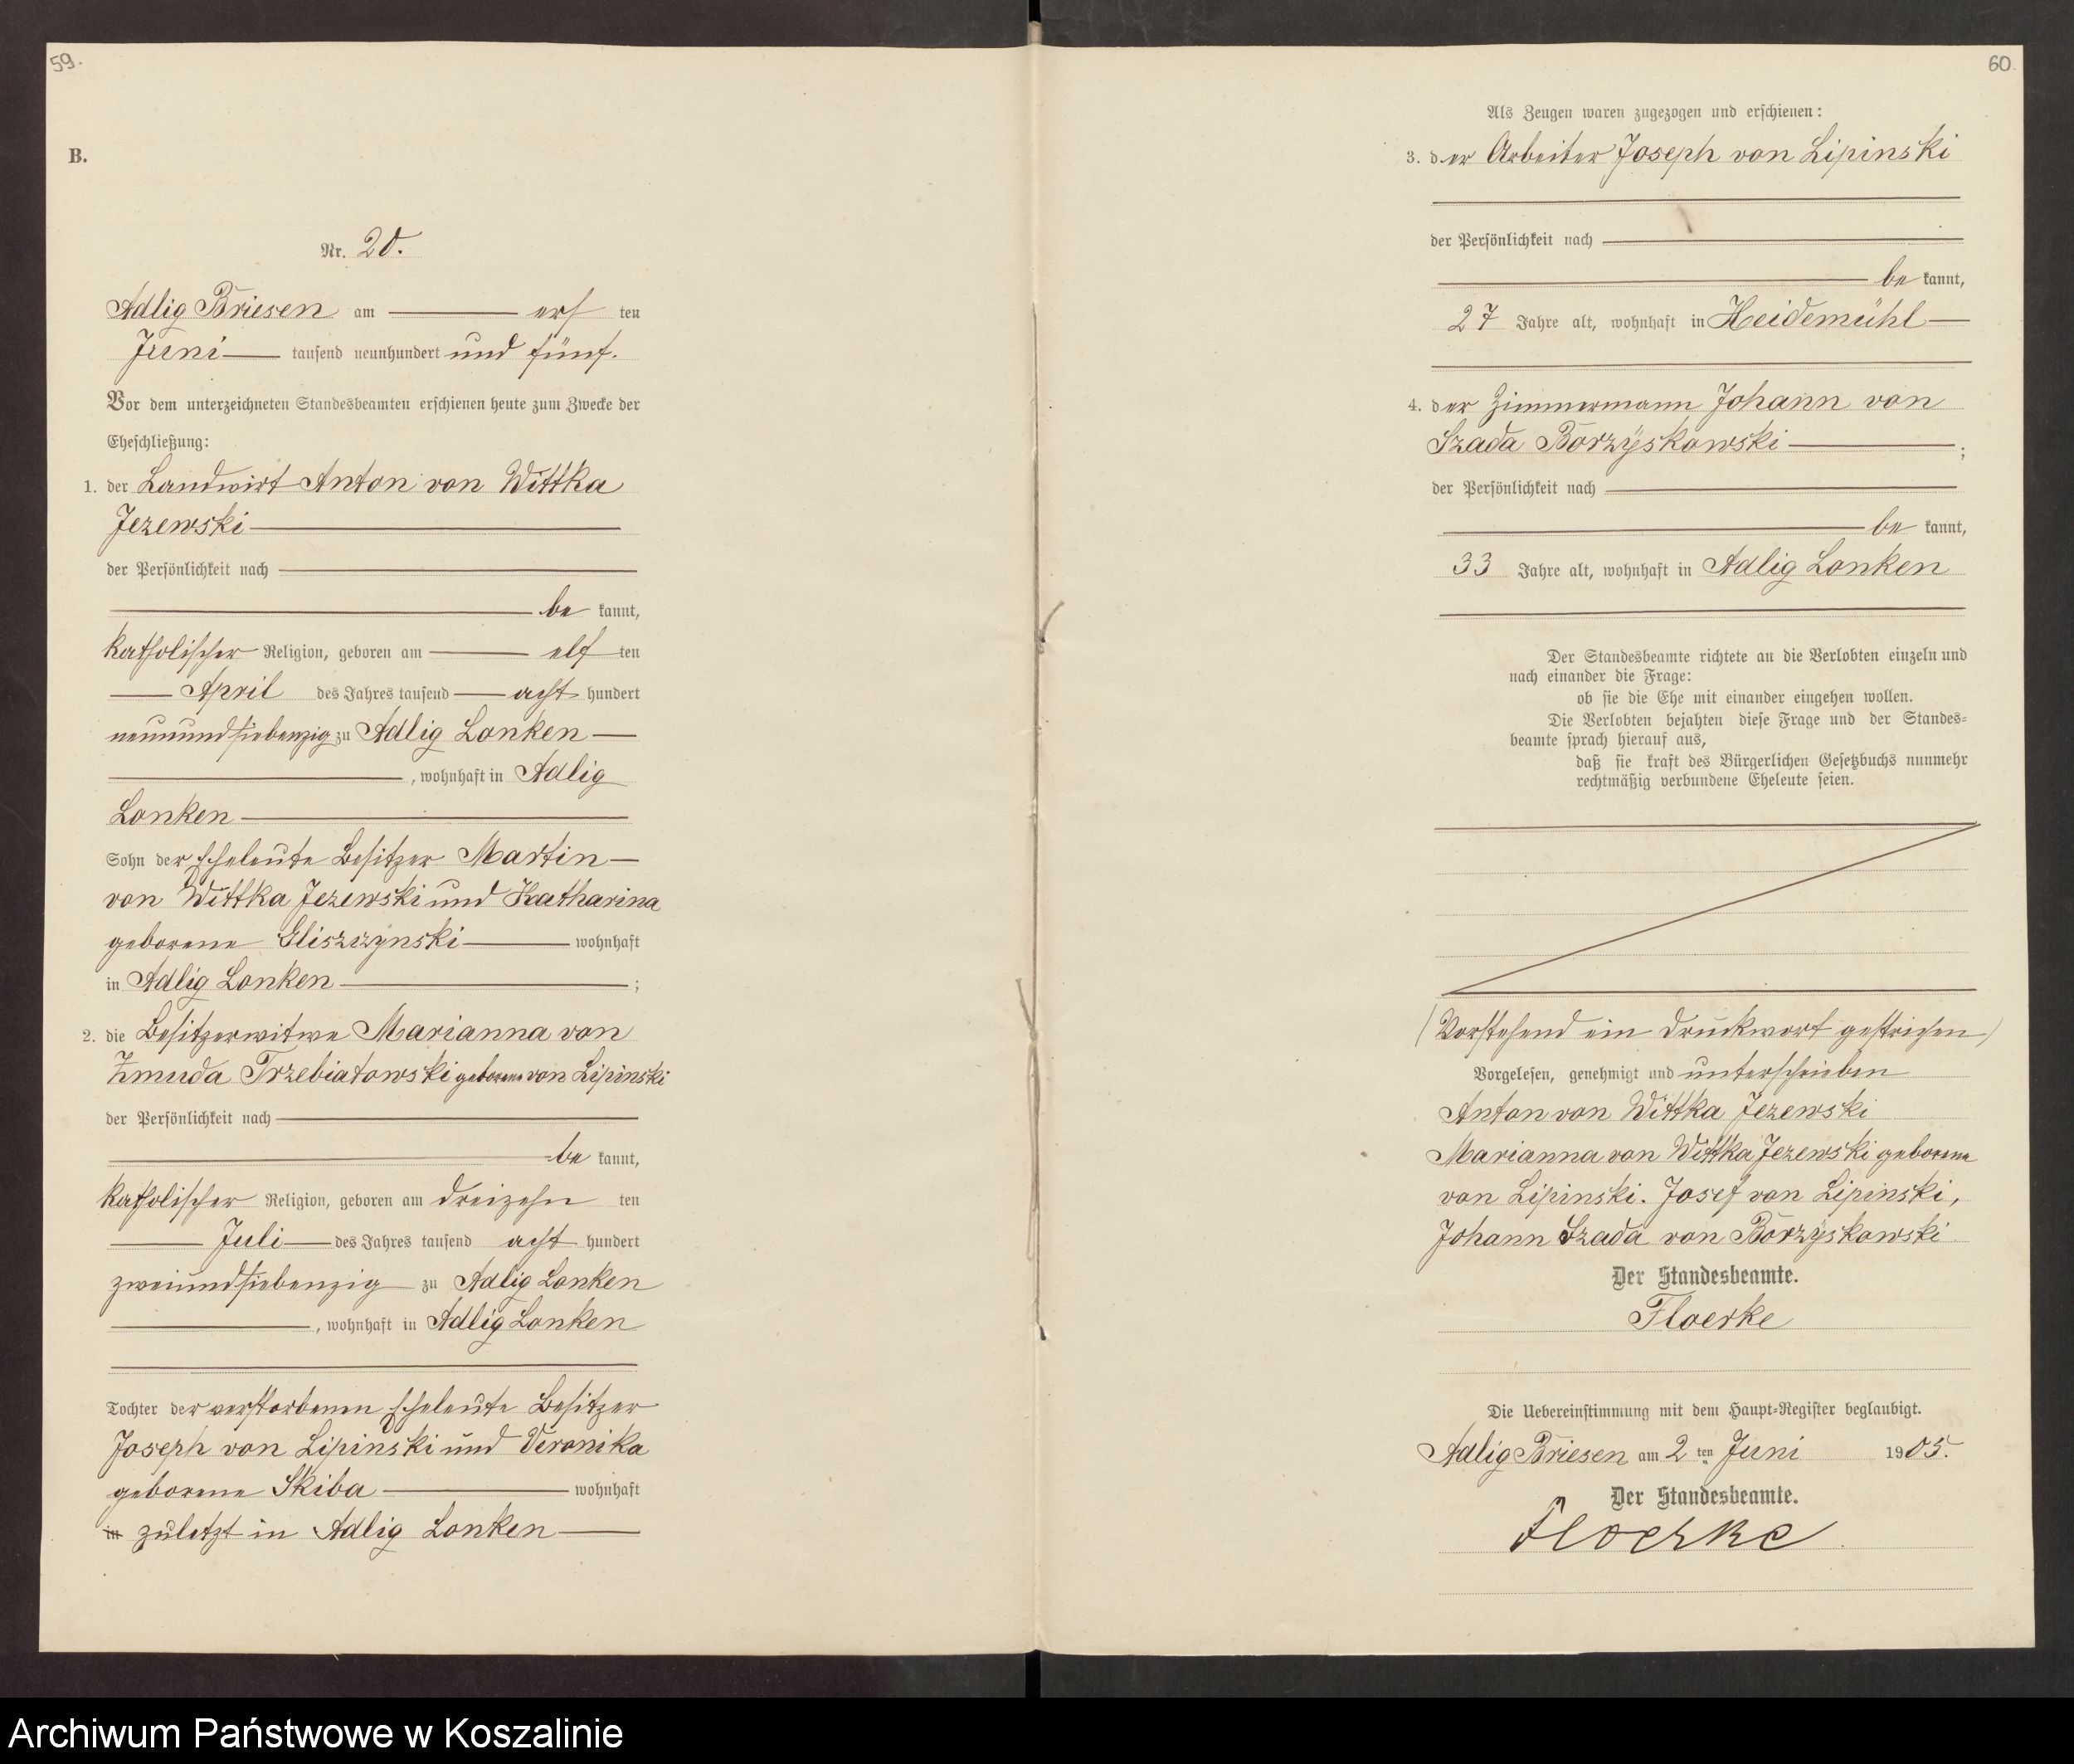 59.
B.
Nr. 20.
Adlig Briesen am ersten
Juni tausend neunhundert und fünf.
Vor dem unterzeichneten Standesbeamten erschienen heute zum Zwecke der
Eheschließung:
1. der Landwirt Anton von Wittka
Jezewski
der Persönlichkeit nach
bekannt,
katholischer Religion, geboren am elften
April des Jahres tausend achthundert
neunundsiebenzig zu Adlig Lonken
, wohnhaft in Adlig
Lonken
Sohn der Eheleute Besitzer Martin
von Wittka Jezewski und Katharina
geborene Gliszczynski wohnhaft
in Adlig Lonken ;
2. die Besitzerwitwe Marianna von
Zmuda Trzebiatowski geborene von Lipinski
der Persönlichkeit nach
bekannt,
katholischer Religion, geboren am dreizehnten
Juli des Jahres tausend achthundert
zweiundsiebenzig zu Adlig Lonken
, wohnhaft in Adlig Lonken
Tochter der verstorbenen Eheleute Besitzer
Joseph von Lipinski und Veronika
geborene Skiba wohnhaft
in zuletzt in Adlig Lonken
60.
Als Zeugen waren zugezogen und erschienen:
3. der Arbeiter Joseph von Lipinski
der Persönlichkeit nach
bekannt,
27 Jahre alt, wohnhaft in Heidemühl
4. der Zimmermann Johann von
Szada Borzyskowski ;
der Persönlichkeit nach
bekannt,
33 Jahre alt, wohnhaft in Adlig Lonken
Der Standesbeamte richtete an die Verlobten einzeln und
nach einander die Frage:
ob sie die Ehe mit einander eingehen wollen.
Die Verlobten bejahten diese Frage und der Standes-
beamte sprach hierauf aus,
daß sie kraft des Bürgerlichen Gesetzbuchs nunmehr
rechtmäßig verbundene Eheleute seien.
(Vorstehend ein Druckwort gestrichen)
Vorgelesen, genehmigt und unterschrieben
Anton von Wittka Jezewski
Marianna von Wittka Jezewski geborene
von Lipinski. Josef von Lipinski,
Johann Szada von Borzyskowski
Der Standesbeamte.
Floerke
Die Uebereinstimmung mit dem Haupt-Register beglaubigt.
Adlig Briesen am 2ten Juni 1905.
Der Standesbeamte.
Floerke
Archiwum Państwowe w Koszalinie